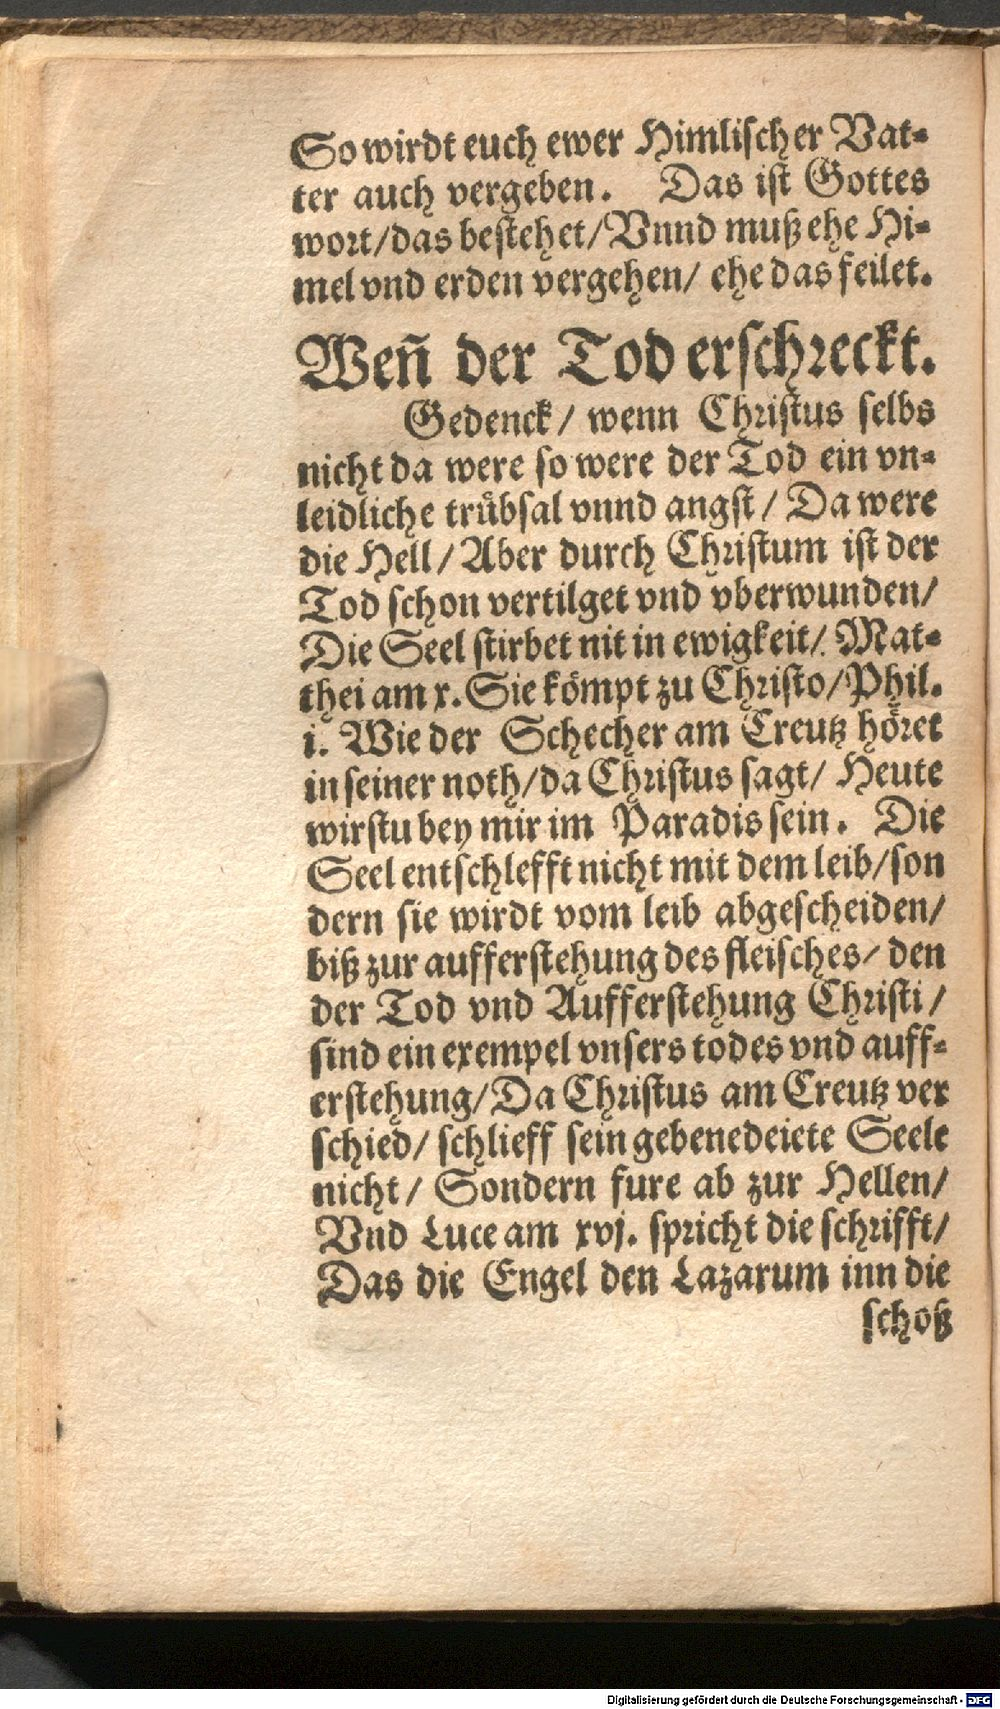 So wirdt euch ewer Himlischer Vat-
ter auch vergeben. Das ist Gottes
wort/das bestehet/Vnnd muß ehe Hi-
mel vnd erden vergehen/ ehe das feilet.
Weñ der Tod erschreckt.
Gedenck/ wenn Christus selbs
nicht da were so were der Tod ein vn-
leidliche trübsal vnnd angst/ Da were
die Hell/ Aber durch Christum ist der
Tod schon vertilget vnd vberwunden/
Die Seel stirbet nit in ewigkeit/ Mat-
thei am x. Sie kömpt zu Christo/Phil.
i. Wie der Schecher am Creutz höret
in seiner noth/da Christus sagt/ Heute
wirstu bey mir im Paradis sein. Die
Seel entschlefft nicht mit dem leib/son
dern sie wirdt vom leib abgescheiden/
biß zur aufferstehung des fleisches/ den
der Tod vnd Aufferstehung Christi/
sind ein exempel vnsers todes vnd auff-
erstehung/Da Christus am Creutz ver
schied/ schlieff sein gebenedeiete Seele
nicht/ Sondern fure ab zur Hellen/
Vnd Luce am xvj. spricht die schrifft/
Das die Engel den Lazarum inn die
schoß
Digitalisierung gefördert durch die Deutsche Forschungsgemeinschaft - DFG